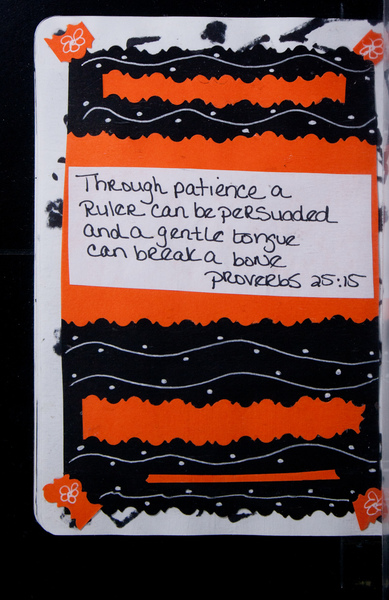 Through patience a
Ruler can be persuaded
and a gentle tongue
can break a bone
Proverbs 25:15